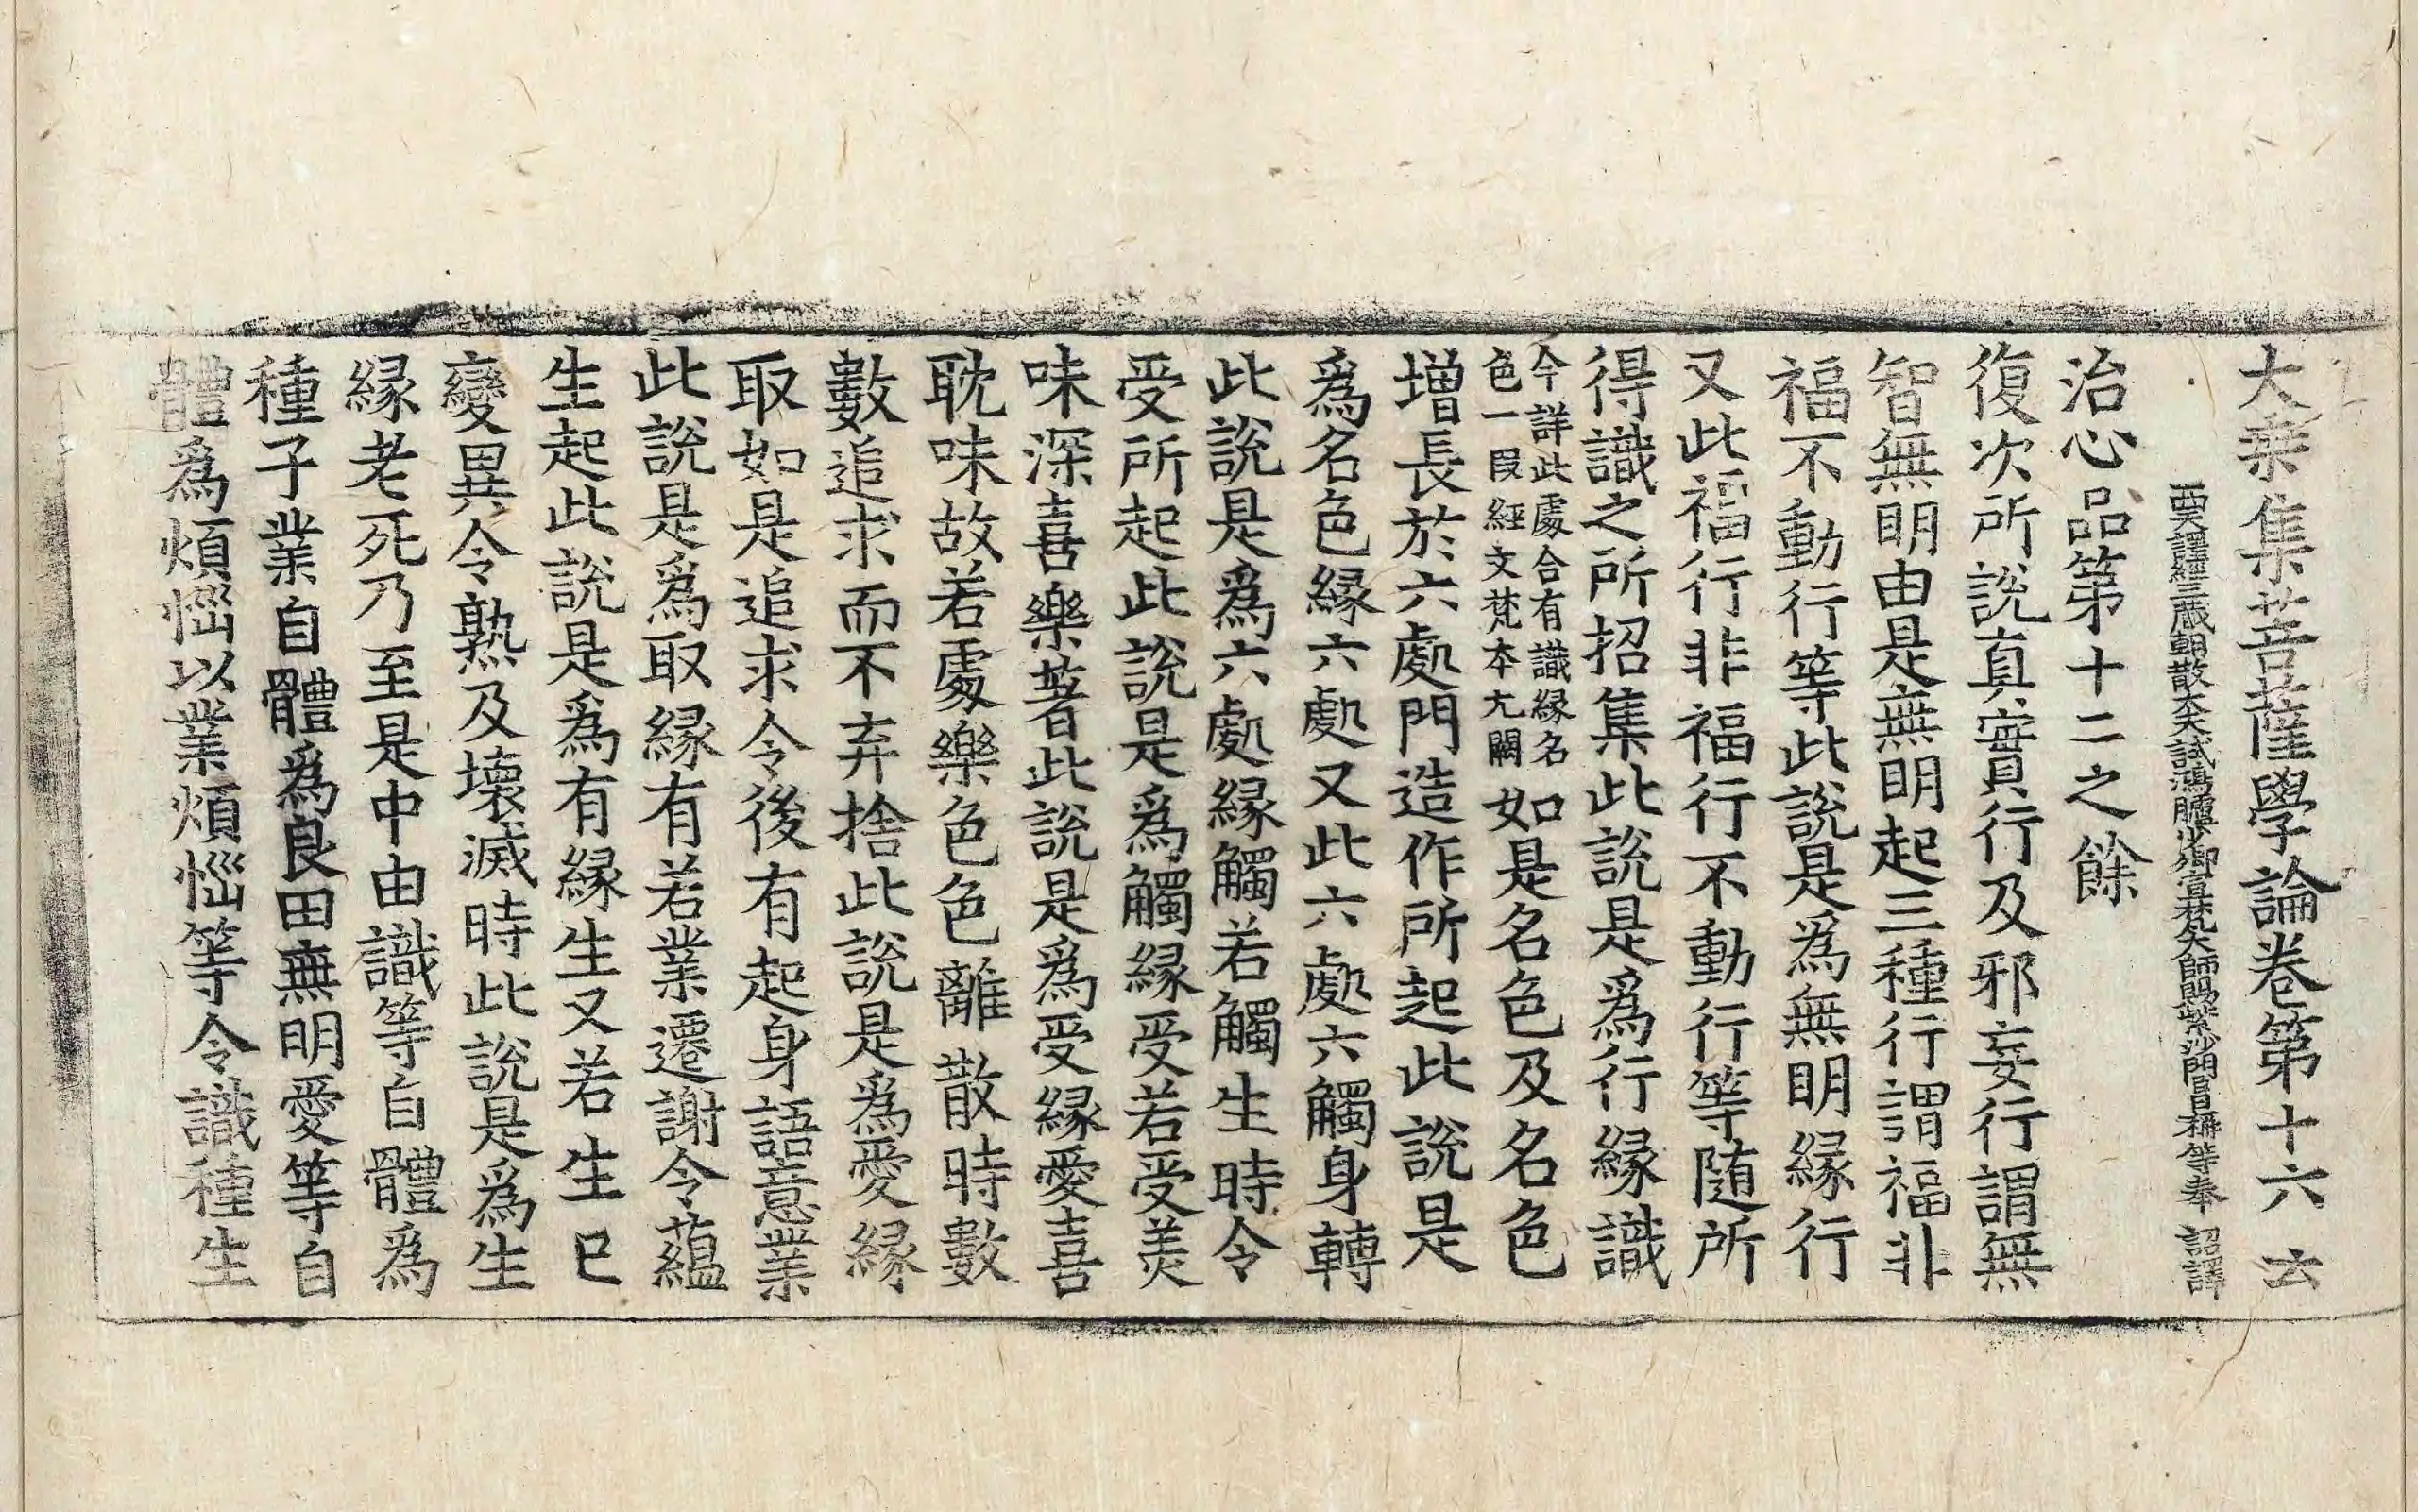 大乗集菩薩學論卷第十六　云
西天譯經三藏朝散大夫試鴻臚少卿宣梵大師賜紫沙門臣日稱等奉　詔譯
治心品第十二之餘
復次所說真實行及邪妄行謂無
智無明由是無明起三種行謂福非
福不動行等此說是為無明緣行
又此福行非福行不動行等随所
得識之所招集此說是為行緣識
今詳此處合有識緣名
色一段經文梵本元闕
如是名色及名色
增長於六處門造作所起此說是
為名色緣六處又此六處六觸身轉
此說是為六處緣觸若觸生時令
受所起此說是為觸緣受若受羙
味深喜樂著此說是為受緣愛喜
耽味故若處樂色色離散時數
數追求而不弃捨此說是為愛緣
取如是追求令後有起身語意業
此說是為取緣有若業遷謝令蘊
生起此說是為有緣生又若生已
變異令熟及壞滅時此說是為生
緣老死乃至是中由識等自體為
種子業自體為良田無明愛等自
體為煩惱以業煩惱等令識種生